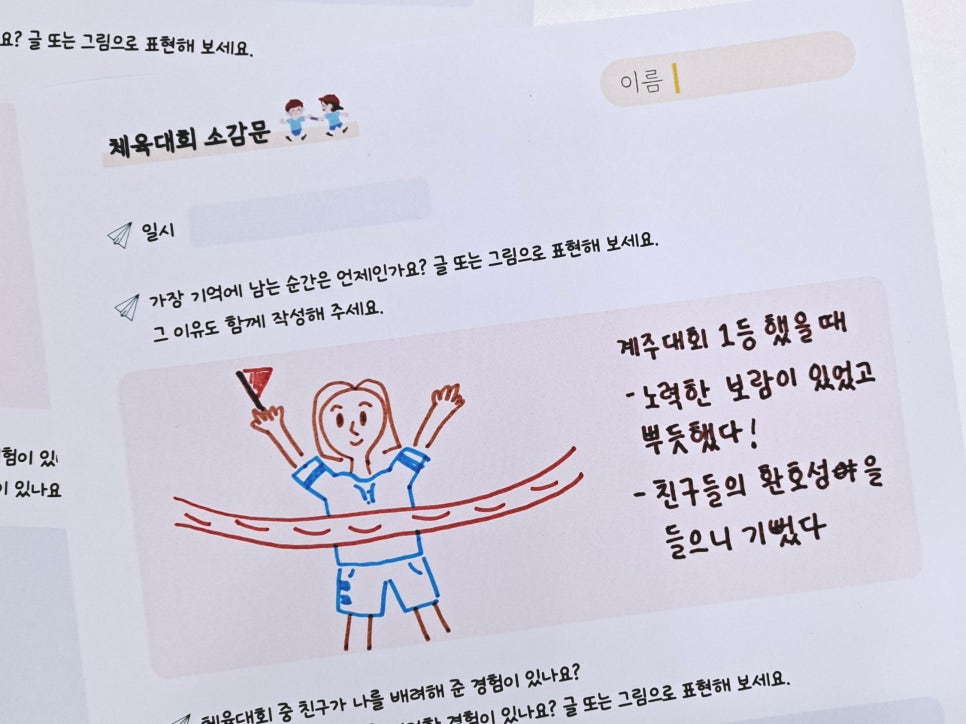 요? 글 또는 그림으로 표현해 보세요.
이름
체육대회 소감문
일시
가장 기억에 남는 순간은 언제인가요? 글 또는 그림으로 표현해 보세요.
그 이유도 함께 작성해 주세요.
계주대회 1등 했을 때
- 노력한 보람이 있었고
뿌듯했다!
- 친구들의 환호성을
들으니 기뻤다
험이 있
이 있나요
체육대회 중 친구가 나를 배려해 준 경험이 있나요?
경험이 있나요? 글 또는 그림으로 표현해 보세요.